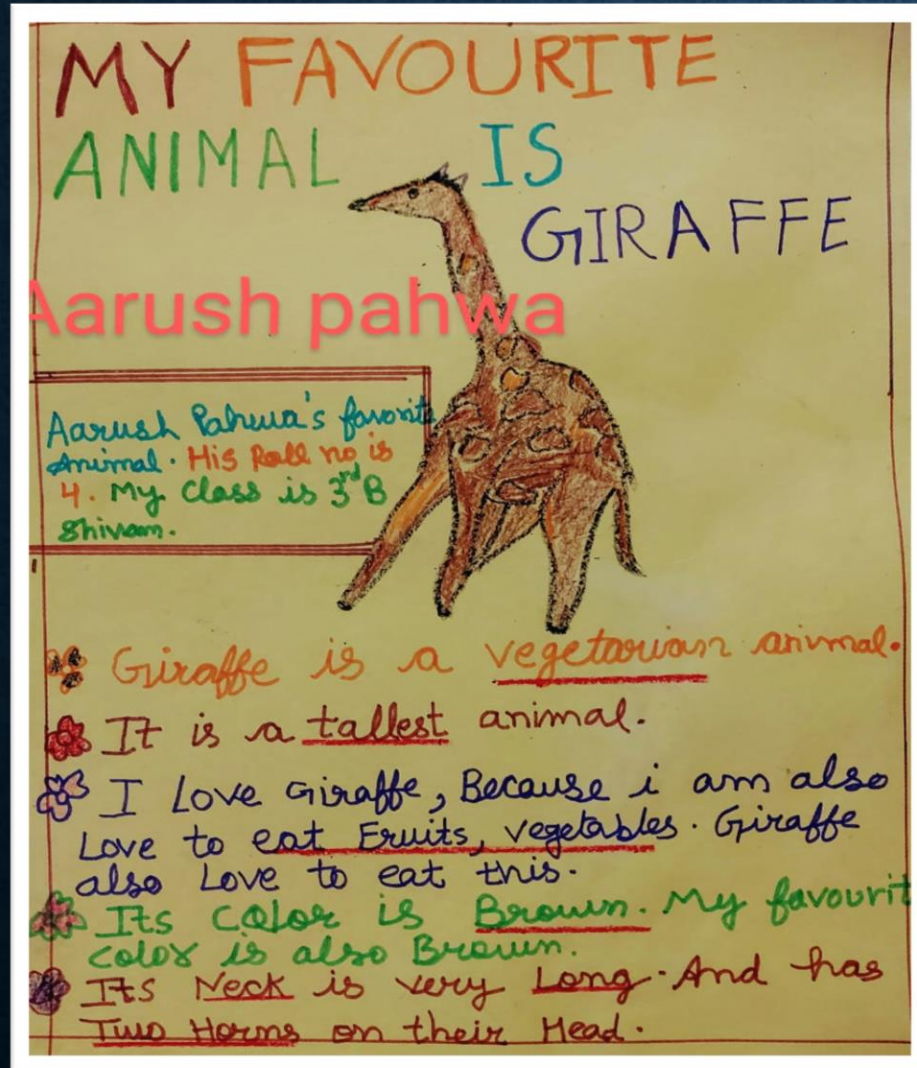 MY FAVOURITE
ANIMAL IS
GIRAFFE
Aarush pahwa
Aarush Pahwa's favorit
Animal. His Roll no is
4. My Class is 3rd B
Shivam.
Giraffe is a vegetarian animal.
It is a tallest animal.
I Love Giraffe, Because i am also
Love to eat Fruits, vegetables. Giraffe
also Love to eat this.
Its Color is Brown. My favourit
color is also Brown.
Its Neck is very Long. And has
Two Horns on their Head.